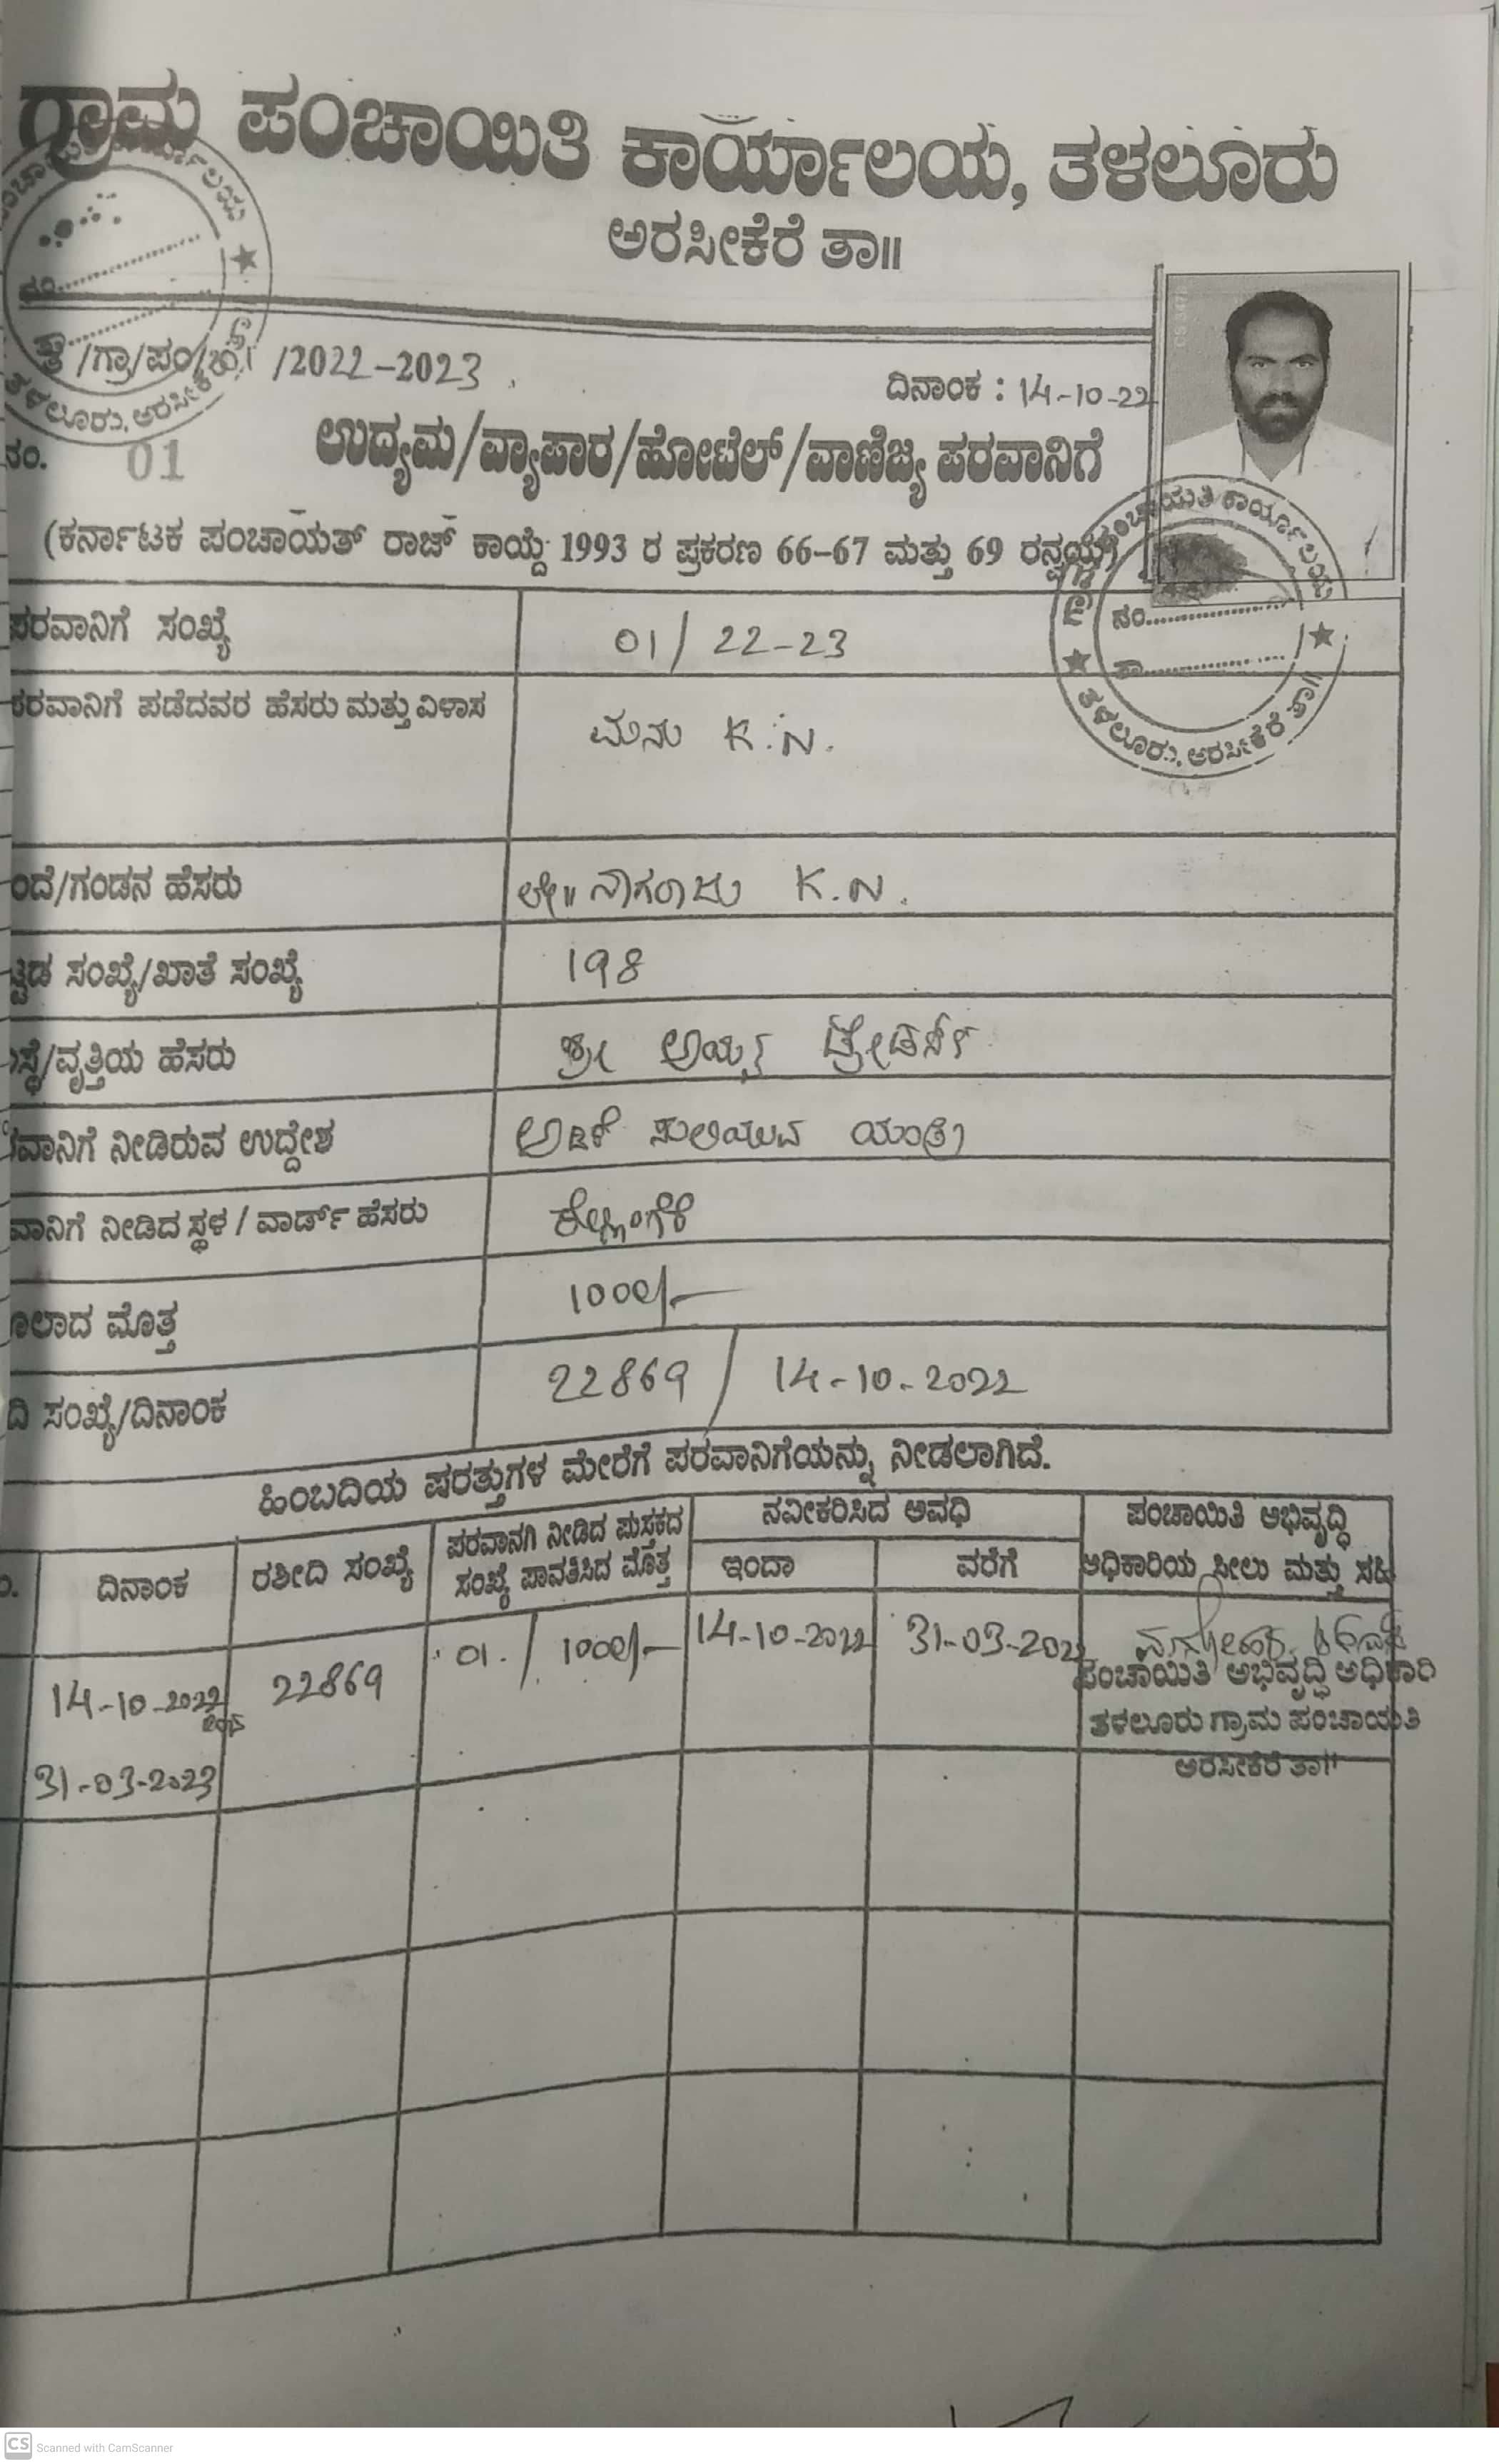 ಗ್ರಾಮ ಪಂಚಾಯಿತಿ ಕಾರ್ಯಾಲಯ, ತಳಲೂರು
ಅರಸೀಕೆರೆ ತಾ॥
/ಗ್ರಾ/ಪಂ/ /2022-2023
ದಿನಾಂಕ : 14-10-22
ನಂ. 01
ಉದ್ಯಮ/ವ್ಯಾಪಾರ/ಹೋಟೆಲ್/ವಾಣಿಜ್ಯ ಪರವಾನಿಗೆ
(ಕರ್ನಾಟಕ ಪಂಚಾಯತ್ ರಾಜ್ ಕಾಯ್ದೆ 1993 ರ ಪ್ರಕರಣ 66-67 ಮತ್ತು 69 ರನ್ವಯ)
ಪಂಚಾಯಿತಿ ಕಾರ್ಯಾಲಯ
ನಂ..................
ತಾ..................
ತಳಲೂರು, ಅರಸೀಕೆರೆ ತಾ॥
ಪರವಾನಿಗೆ ಸಂಖ್ಯೆ 01/ 22-23
ಪರವಾನಿಗೆ ಪಡೆದವರ ಹೆಸರು ಮತ್ತು ವಿಳಾಸ ಮನು K.N.
ಂದೆ/ಗಂಡನ ಹೆಸರು ಲೇ॥ ನಾಗರಾಜು K.N.
ಟ್ಟಡ ಸಂಖ್ಯೆ/ಖಾತೆ ಸಂಖ್ಯೆ 198
ಸ್ಥೆ/ವೃತ್ತಿಯ ಹೆಸರು ಶ್ರೀ ಅಯ್ಯ ಟ್ರೇಡರ್ಸ್
ವಾನಿಗೆ ನೀಡಿರುವ ಉದ್ದೇಶ ಅಡಿಕೆ ಸುಲಿಯುವ ಯಂತ್ರ
ವಾನಿಗೆ ನೀಡಿದ ಸ್ಥಳ / ವಾರ್ಡ್ ಹೆಸರು
ೂಲಾದ ಮೊತ್ತ 1000/-
ದಿ ಸಂಖ್ಯೆ/ದಿನಾಂಕ 22869 / 14-10-2022
ಹಿಂಬದಿಯ ಷರತ್ತುಗಳ ಮೇರೆಗೆ ಪರವಾನಿಗೆಯನ್ನು ನೀಡಲಾಗಿದೆ.
ದಿನಾಂಕ ರಶೀದಿ ಸಂಖ್ಯೆ ಪರವಾನಗಿ ನೀಡಿದ ಪುಸ್ತಕದ ನವೀಕರಿಸಿದ ಅವಧಿ ಪಂಚಾಯಿತಿ ಅಭಿವೃದ್ಧಿ
ಸಂಖ್ಯೆ ಪಾವತಿಸಿದ ಮೊತ್ತ ಇಂದಾ ವರೆಗೆ ಅಧಿಕಾರಿಯ ಸೀಲು ಮತ್ತು ಸಹಿ
14-10-2022 22869 01. / 1000/- 14-10-2022 31-03-202
31-03-2023
ಪಂಚಾಯಿತಿ ಅಭಿವೃದ್ಧಿ ಅಧಿಕಾರಿ
ತಳಲೂರು ಗ್ರಾಮ ಪಂಚಾಯತಿ
ಅರಸೀಕೆರೆ ತಾ॥
CS Scanned with CamScanner